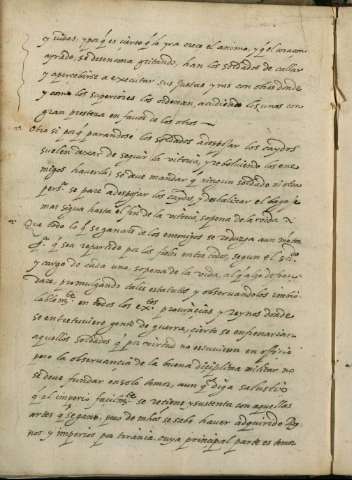 y ruidos, y porq̃ es cierto q̃ la yra crece el animo, y q̃ el coraçon
ayrado, se desencona gritando, han los soldados de callar
y apercebirse a executar sus fuerças y yrs con obras donde
y como los superiores los ordenan, acudiendo los unos con
gran presteza en favor de los otros
Otrosi porq̃ parandose los soldados a despojar los caydos
suelen dexar de seguir la vitoria, y rebolviendo los ene
migos haverla, se deve mandar q̃ ningun soldado ni otra
persª. se pare a despojar los caydos, y desbalizar el bagaje
mas sigua hasta el fin de la vitoria so pena de la vida
Que todo lo q̃ se ganare de los enemigos se reduzga a un monton
qᵉ. q̃ sea repartido por las partes entre todos, segun el
y cargo de cada uno, so pena de la vida, al q̃ algo defrau
dare, promulgando tales estatutos y observandolos inviol
ablemᵗᵉ. en todos los exᵗᵒˢ. provinçias y reynos donde
se entretuviere gente de guerra, cierto se enfrenarian
aquellos soldados q̃ por virtud no estuviessen en officio
pero la observançia de la buena disciplina militar no
se deve fundar en solo temor, aun qᵉ. diga salustio
q̃ el imperio facilmᵗᵉ. se retiene y sustenta con aquellas
artes q̃ se gano, pues de mᶜʰᵒˢ se sabe haver adquirido Rey
nos, y imperios por tirania, cuya principal parte es temor